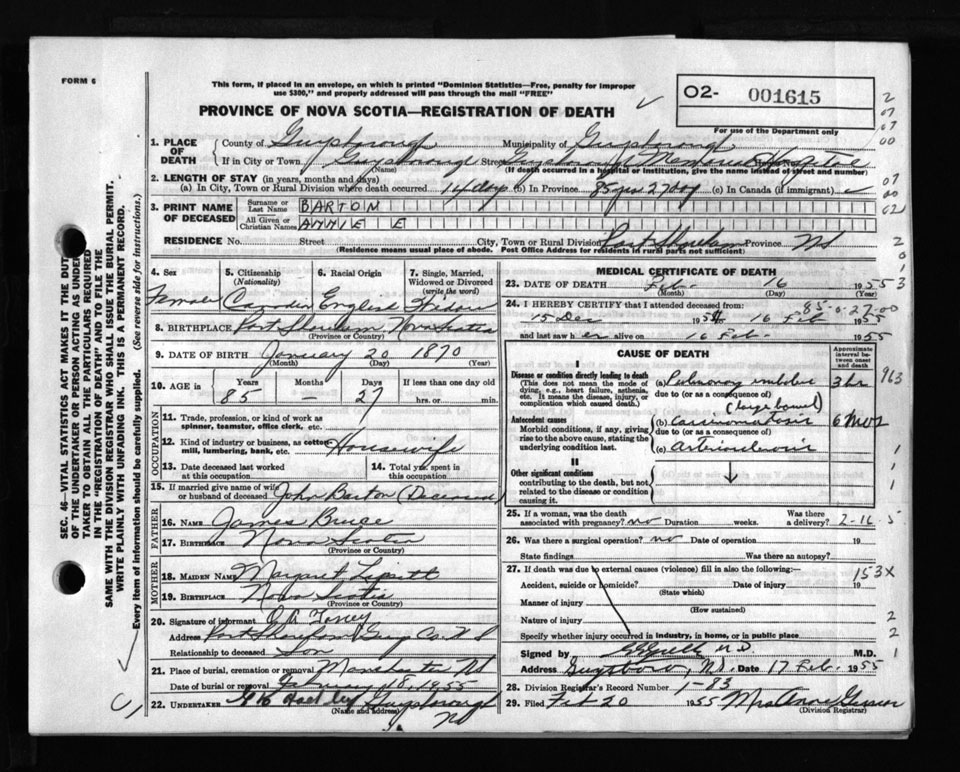 FORM 6
This form, if placed in an envelope, on which is printed "Dominion Statistics—Free, penalty for improper
use $300," and properly addressed will pass through the mail "FREE"
PROVINCE OF NOVA SCOTIA—REGISTRATION OF DEATH
O2- 001615
For use of the Department only
1. PLACE OF DEATH
County of Guysborough Municipality of Guysborough
If in City or Town Guysborough Street Guysborough Memorial Hospital
(Name) (If death occurred in a hospital or institution, give the name instead of street and number)
2. LENGTH OF STAY (in years, months and days)
(a) In City, Town or Rural Division where death occurred 14 days (b) In Province 85 yrs 27 days (c) In Canada (if immigrant)
3. PRINT NAME OF DECEASED
Surname or Last Name BARTON
All Given or Christian Names ANNIE E
RESIDENCE No. Street City, Town or Rural Division Port Shoreham Province NS
(Residence means usual place of abode. Post Office Address for residents in rural parts not sufficient)
4. Sex
Female
5. Citizenship
(Nationality)
6. Racial Origin
English
7. Single, Married,
Widowed or Divorced
(write the word)
Widow
8. BIRTHPLACE Port Shoreham Nova Scotia
(Province or Country)
9. DATE OF BIRTH January 20 1870
(Month) (Day) (Year)
10. AGE in Years Months Days If less than one day
85 - 27 hrs. or min.
OCCUPATION
11. Trade, profession, or kind of work as
spinner, teamster, office clerk, etc.
12. Kind of industry or business, as cotton-
mill, lumbering, bank, etc. Housewife
13. Date deceased last worked
at this occupation
14. Total yrs. spent in
this occupation
15. If married give name of wife
or husband of deceased John Barton (Deceased)
FATHER
16. NAME James Bruce
17. BIRTHPLACE Nova Scotia
(Province or Country)
MOTHER
18. MAIDEN NAME Margaret
19. BIRTHPLACE Nova Scotia
(Province or Country)
20. Signature of informant
Address Port Shoreham Guys Co. N S
Relationship to deceased Son
21. Place of burial, cremation or removal Manchester NS
Date of burial or removal February 18, 1955
22. UNDERTAKER Guysborough
(Name and address)
NS
MEDICAL CERTIFICATE OF DEATH
23. DATE OF DEATH Feb. 16 1955
(Month) (Day) (Year)
85-0-27-00
24. I HEREBY CERTIFY that I attended deceased from:
15 Dec 1954 16 Feb 1955
and last saw her alive on 16 Feb 1955
CAUSE OF DEATH
Approximate interval between onset and death
I
Disease or condition directly leading to death
(This does not mean the mode of
dying, e.g., heart failure, asthenia,
etc. It means the disease, injury, or
complication which caused death.)
(a) Pulmonary embolus 3 hr
due to (or as a consequence of)
(large bowel)
Antecedent causes
Morbid conditions, if any, giving
rise to the above cause, stating the
underlying condition last.
(b) Carcinomatosis 6 mos
due to (or as a consequence of)
(c) Arteriosclerosis
II
Other significant conditions
contributing to the death, but not
related to the disease or condition
causing it.
25. If a woman, was the death
associated with pregnancy? no Duration weeks. Was there
a delivery?
2-16-5
26. Was there a surgical operation? no Date of operation 19
State findings Was there an autopsy?
27. If death was due to external causes (violence) fill in also the following:—
153X
Accident, suicide or homicide? Date of injury 19
(State which)
Manner of injury
(How sustained)
Nature of injury
Specify whether injury occurred in industry, in home, or in public place
Signed by M.D. M.D.
Address Guysboro, N.S. Date 17 Feb. 1955
28. Division Registrar's Record Number 1-83
29. Filed Feb 20 1955 Mrs
(Division Registrar)
SEC. 46—VITAL STATISTICS ACT MAKES IT THE DUTY
OF THE UNDERTAKER OR PERSON ACTING AS UNDER-
TAKER TO OBTAIN ALL THE PARTICULARS REQUIRED
IN THE "REGISTRATION OF DEATH" AND TO FILE THE
SAME WITH THE DIVISION REGISTRAR WHO SHALL ISSUE THE BURIAL PERMIT.
WRITE PLAINLY WITH UNFADING INK. THIS IS A PERMANENT RECORD.
Every item of information should be carefully supplied. (See reverse side for instructions.)
963